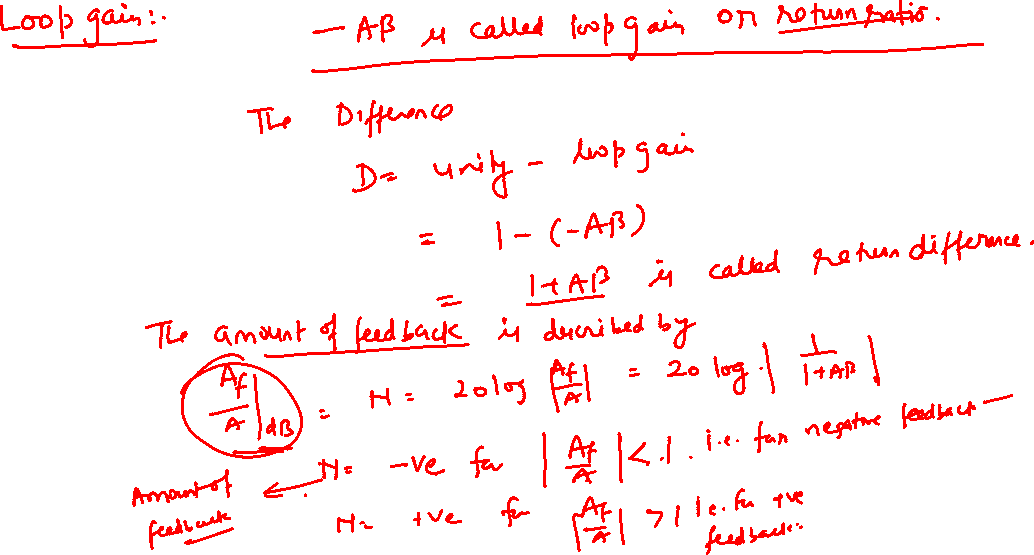 Loop gain:.
– Aβ is called loop gain or return ratio.
The Difference
D = unity – loop gain
= 1 – (–Aβ)
= 1 + Aβ is called return difference.
The amount of feedback is described by
Af/A |dB = N = 20 log |Af/A| = 20 log |1/(1+Aβ)|
Amount of feedback ← N = –ve for |Af/A| < 1. i.e. for negative feedback –
N = +ve for |Af/A| > 1 i.e. for +ve
feedback.